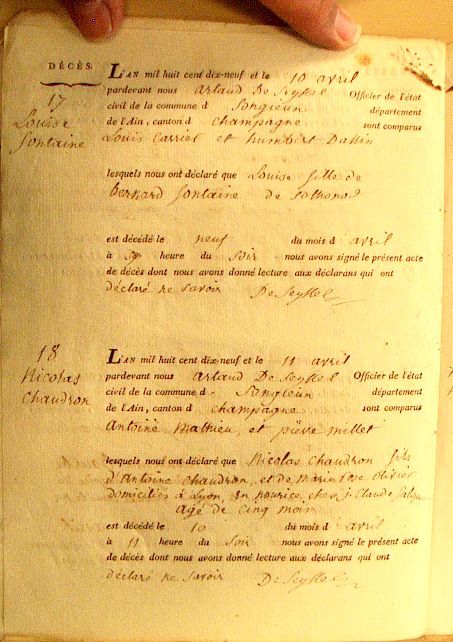 DÉCÈS.
17
Louise
fontaine
L'AN mil huit cent dix-neuf et le 10 avril
pardevant nous artaud De Seyssel Officier de l'état
civil de la commune d Songieun département
de l'Ain, canton d champagne sont comparus
Louis Carrier et humbert Dassin
lesquels nous ont déclaré que Louise fille de
bernard fontaine de Sothonod
est décédé le neuf du mois d avril
à heure du Soir nous avons signé le présent acte
de décès dont nous avons donné lecture aux déclarans qui ont
déclaré ne Savoir De Seyssel
18
Nicolas
Chaudron
L'AN mil huit cent dix-neuf et le 11 avril
pardevant nous artaud De Seyssel Officier de l'état
civil de la commune d Songieun département
de l'Ain, canton d champagne sont comparus
antoine mathieu, et pierre millet
lesquels nous ont déclaré que Nicolas Chaudron fils
d'antoine Chaudron, et de marie rose olivier
domiciliés à Lyon, en nourice chez j. Claude
agé de cinq mois
est décédé le 10 du mois d avril
à 11 heure du Soir nous avons signé le présent acte
de décès dont nous avons donné lecture aux déclarans qui ont
déclaré ne savoir De Seyssel